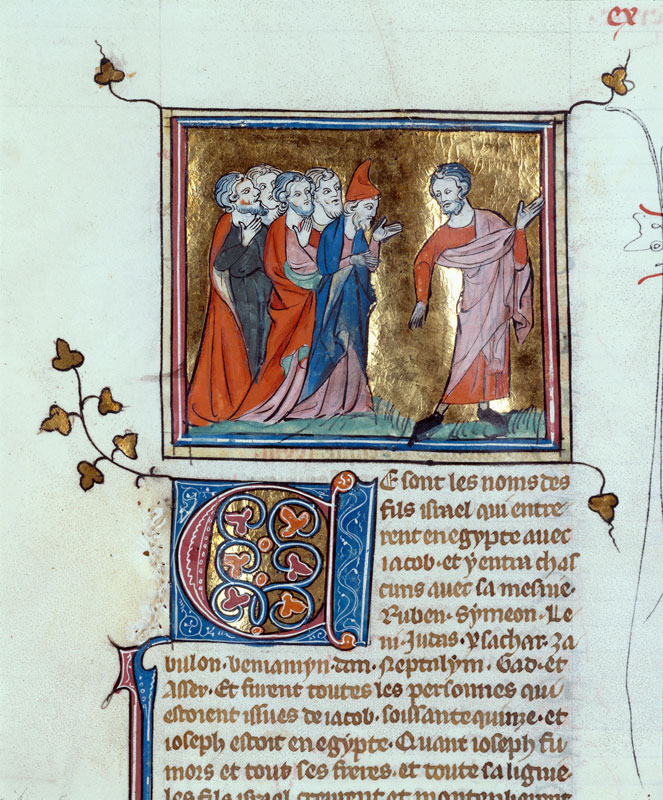 ex
CE sont les noms des
fils israel qui entre
rent en egypte avec
iacob · et y entra chas
cuns avec sa mesnie ·
Ruben · Symeon · Le
ui · Judas · ysachar · za
bulon · beniamyn · dan · Neptalym · Gad · et
Asser · Et furent toutes les personnes qui
estoient issues de iacob · soissante quinze · et
ioseph estoit en egypte · Quant ioseph fu
mors et touz ses freres · et toute sa lignie
les filz israel crurent et monteplierent